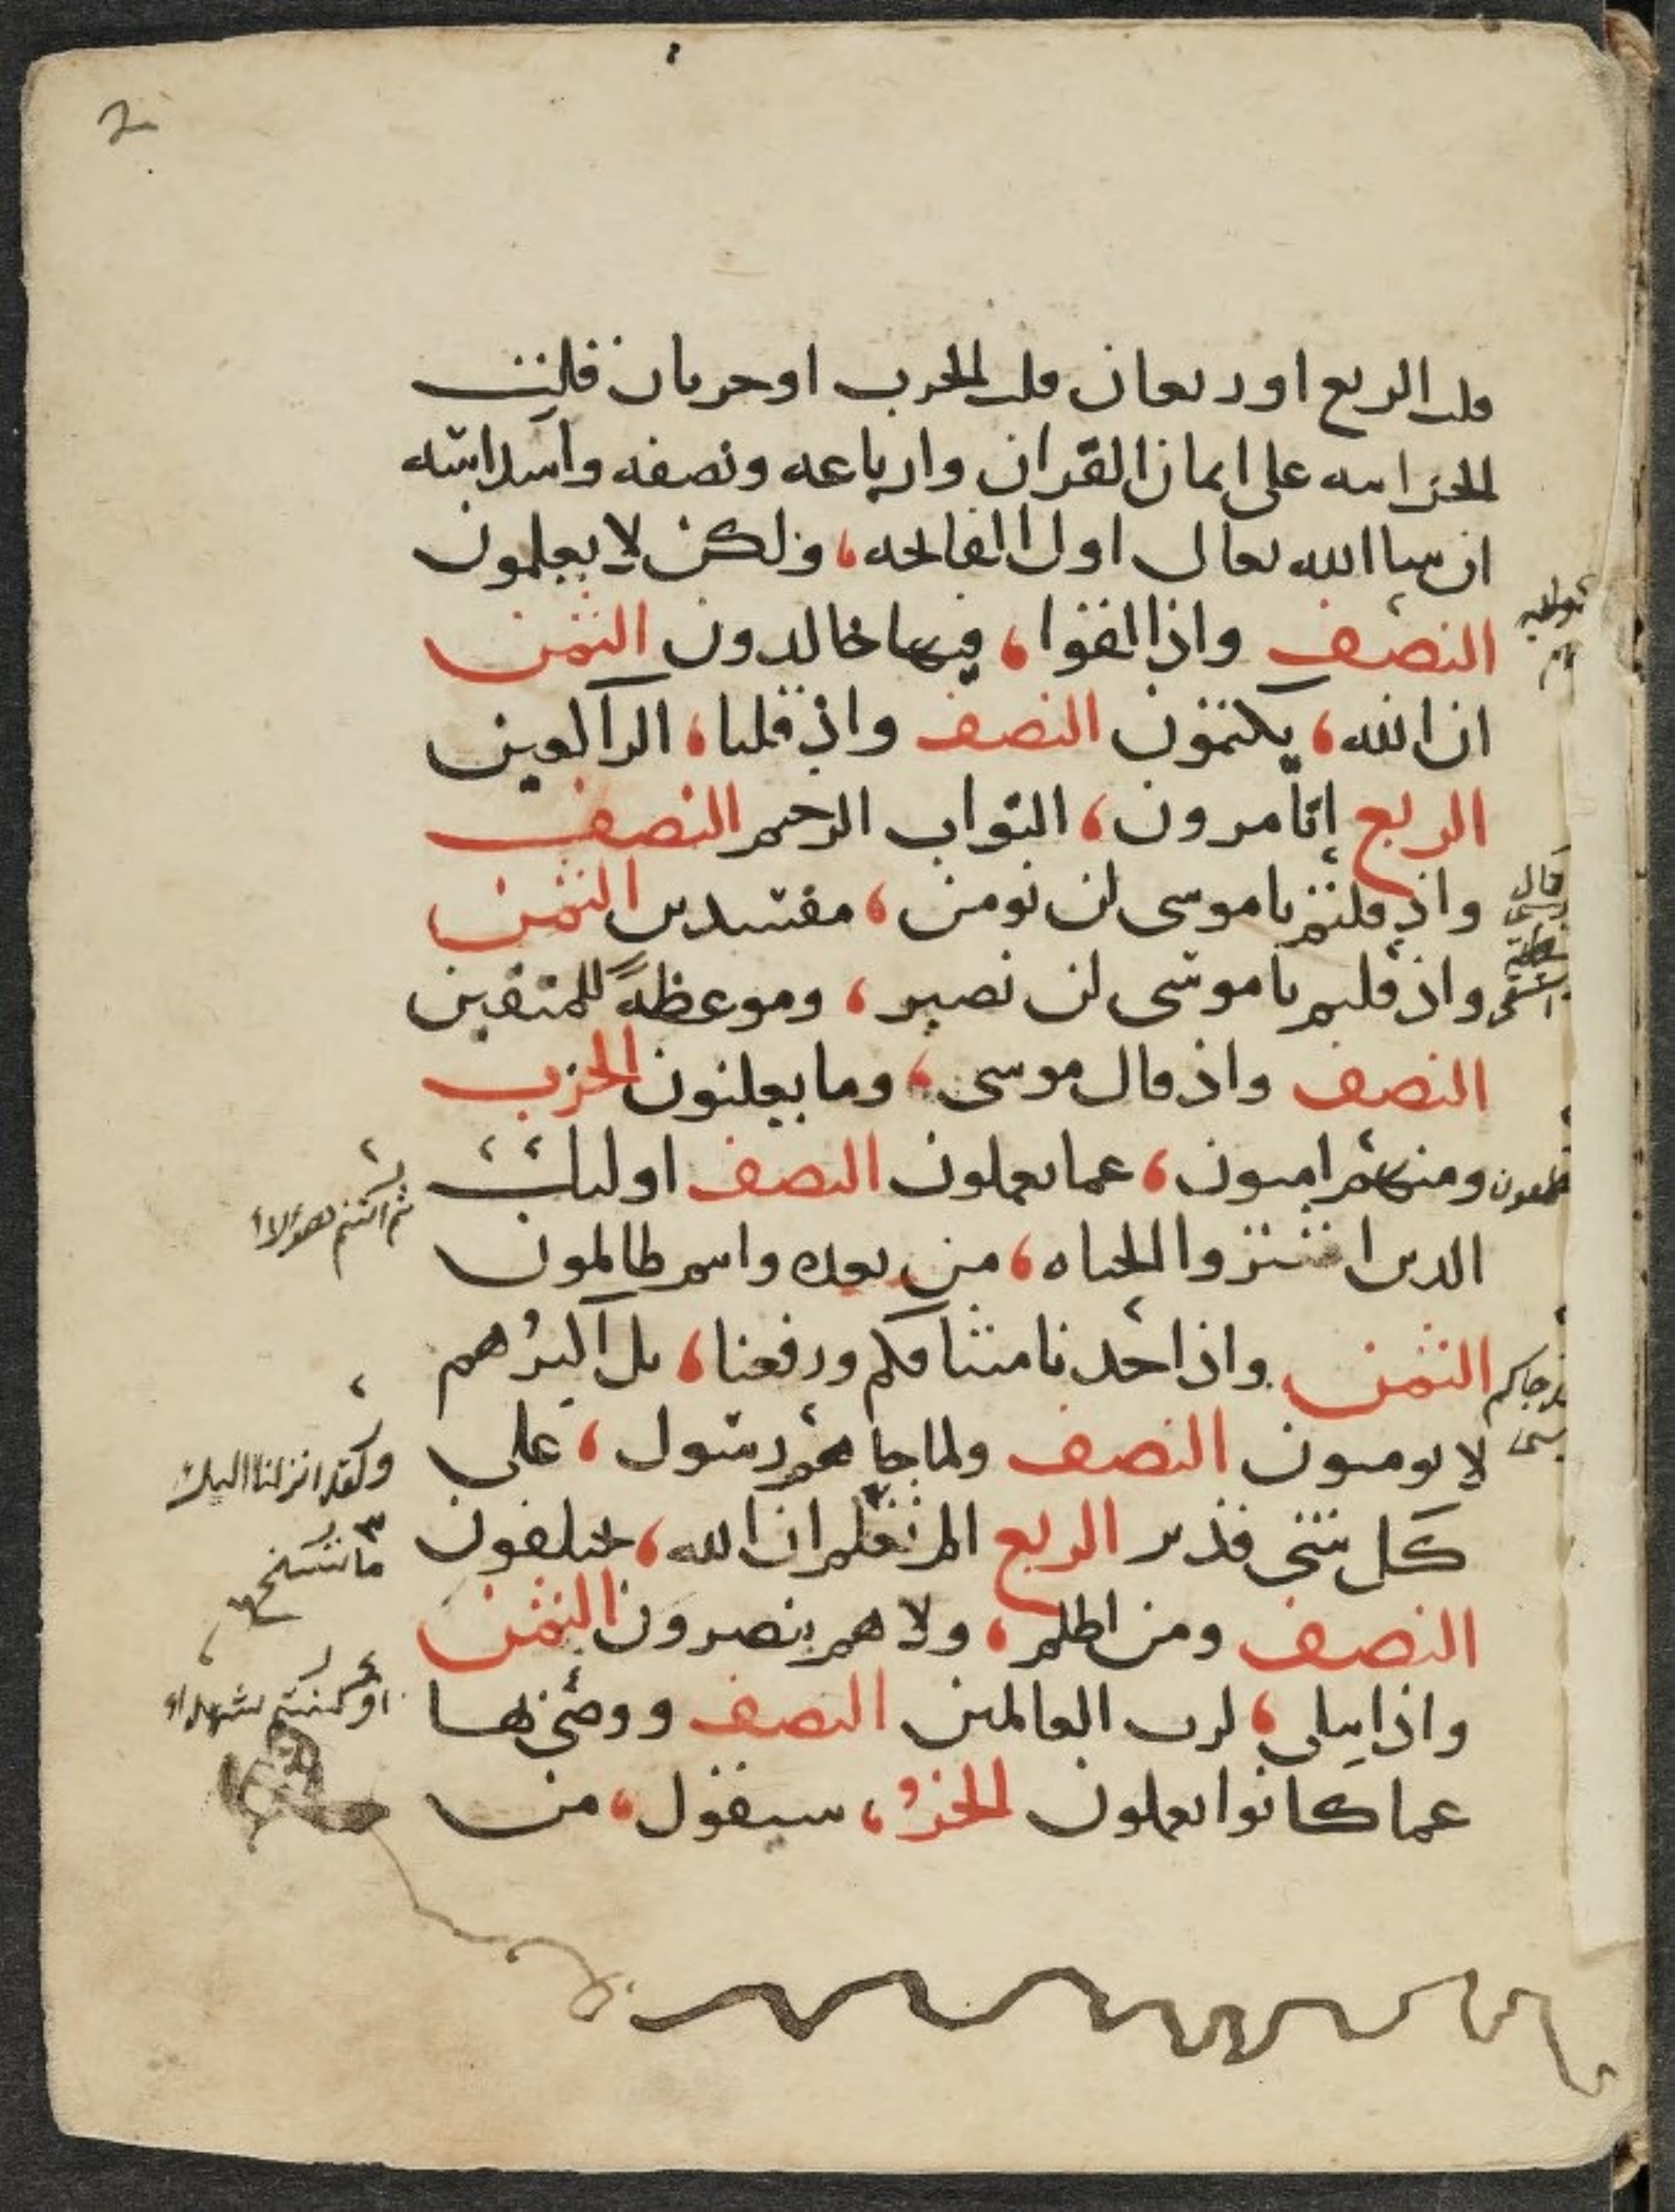 قلت الربع او ربعان قلت الحزب او حزبان قلت
الحزابيه على اثمان القران وارباعه ونصفه واسل الله
ان شا الله تعالى اول الفاتحه، ولكن لا يعلمون
النصف واذا لقوا، فيها خالدون الثمن
ان الله، يكتمون النصف واذ قلنا، الراكعين
الربع اتامرون، التواب الرحيم النصف
واذ قلتم ياموسى لن نومن، مفسدين الثمن
واذ قلتم ياموسى لن نصبر، وموعظة للمتقين
النصف واذ قال موسى، وما يعلنون الحزب
ومنهم اميون، عما تعملون النصف اوليك
الذين اشتروا الحياه، من بعده وانتم ظالمون
الثمن واذ اخذنا ميثاقكم ورفعنا، بل اكثرهم
لا يومنون النصف ولما جاهم رسول، على
كل شى قدير الربع الم تعلم ان الله، يختلفون
النصف ومن اظلم، ولا هم ينصرون الثمن
واذ ابتلى، لرب العالمين النصف ووصى بها
عما كانوا يعملون الحزب، سيقول، من
ثم انتم هؤلاء
ولقد انزلنا اليك
ما ننسخ
ام كنتم شهداء